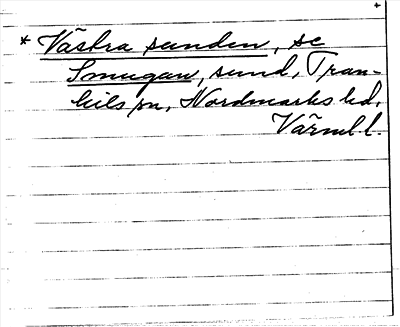 * Västra sunden, se
Smugan, sund, Tran-
kils sn, Nordmarks hd,
Värml l.